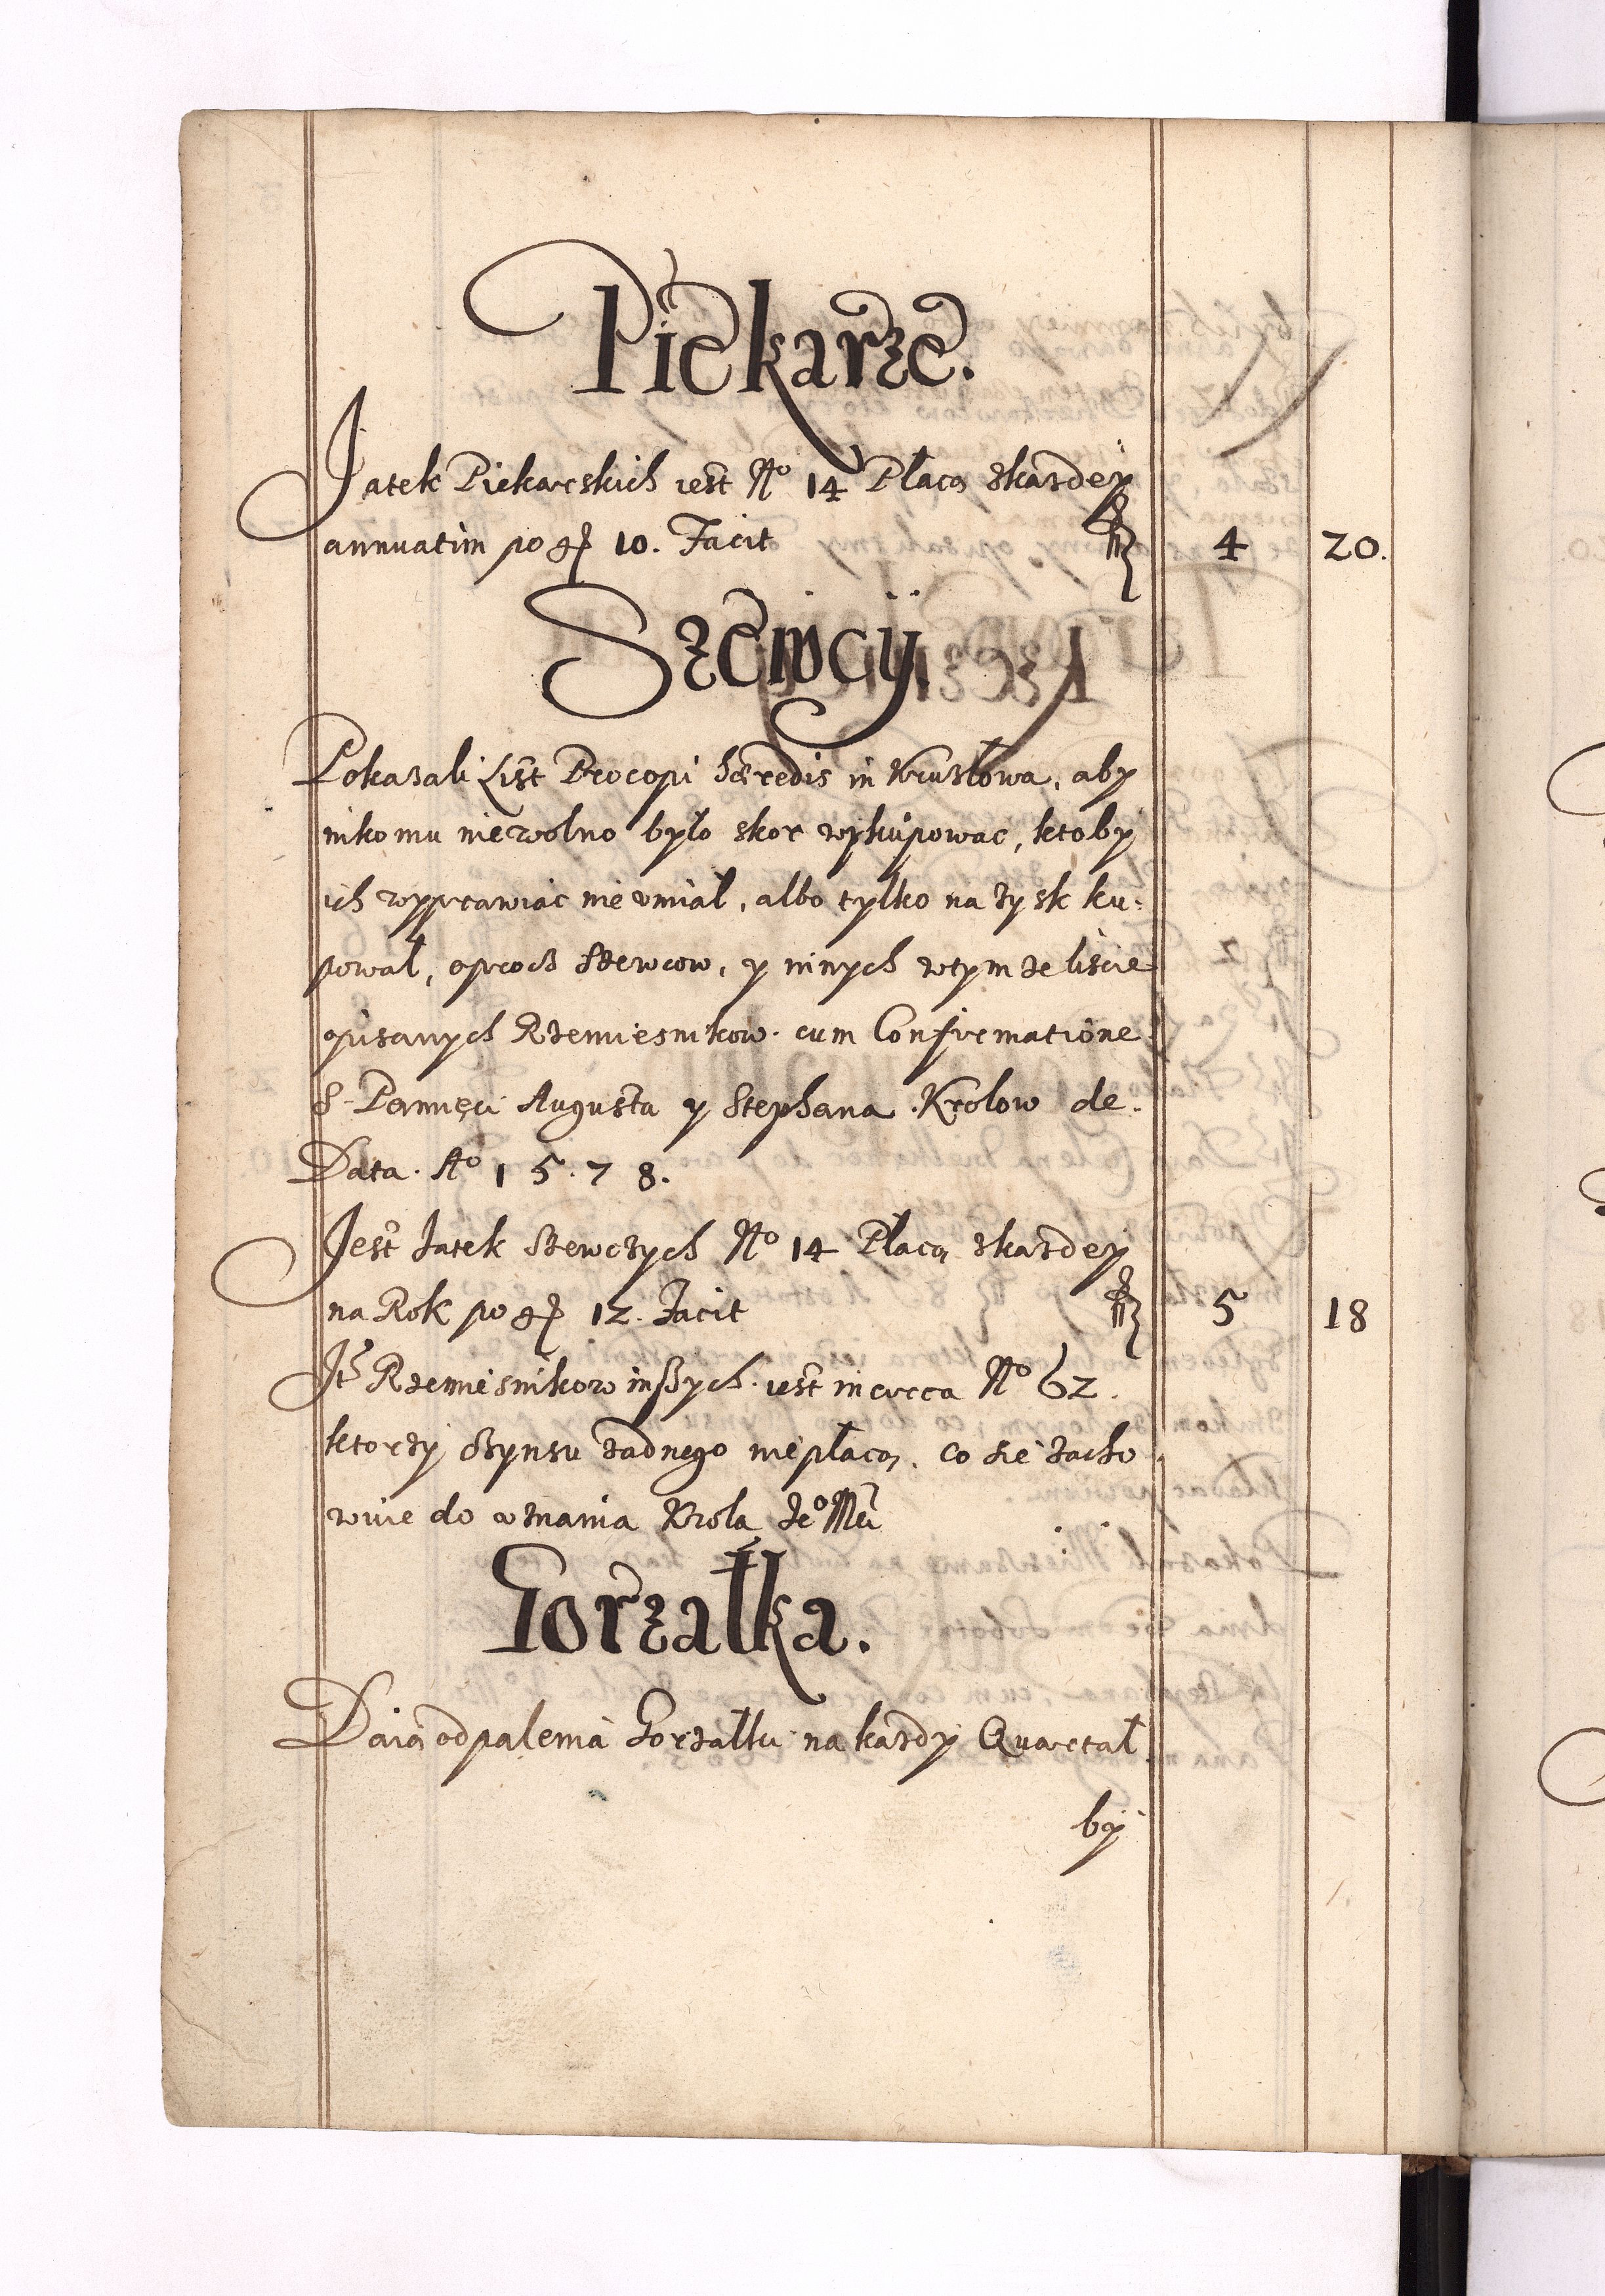 Piekarze.
Jatek Piekarskich iest No 14 Płacą zkazdey
annuatim po gr 10. Facit fl 4 20.
Szewcy
Pokazali List Procopi hæredis in Kruzlowa, aby
nikomu niewolno było skor wykupowac, ktoby
ich wyprawiac nie vmiał, albo tylko na zysk ku-
powal, oprocz Szewcow, y ninych wtymze liscie
opisanych Rzemiesnikow cum Confirmatione
S. Pamięci Augusta y Stephana Krolow de
Data Ao 1578.
Jest Jatek Szewczych No 14 Płacą zkazdey
na Rok po gr 12. Facit fl 5 18
It. Rzemiesnikow inszych iest in circa No 62.
ktorzy Czynszu zadnego niepłacą, co sie zacho
wuie do vznania Krola Jeo Mci
Gorzałka.
Daią od palenia Gorzałki na kazdy Quartał
by